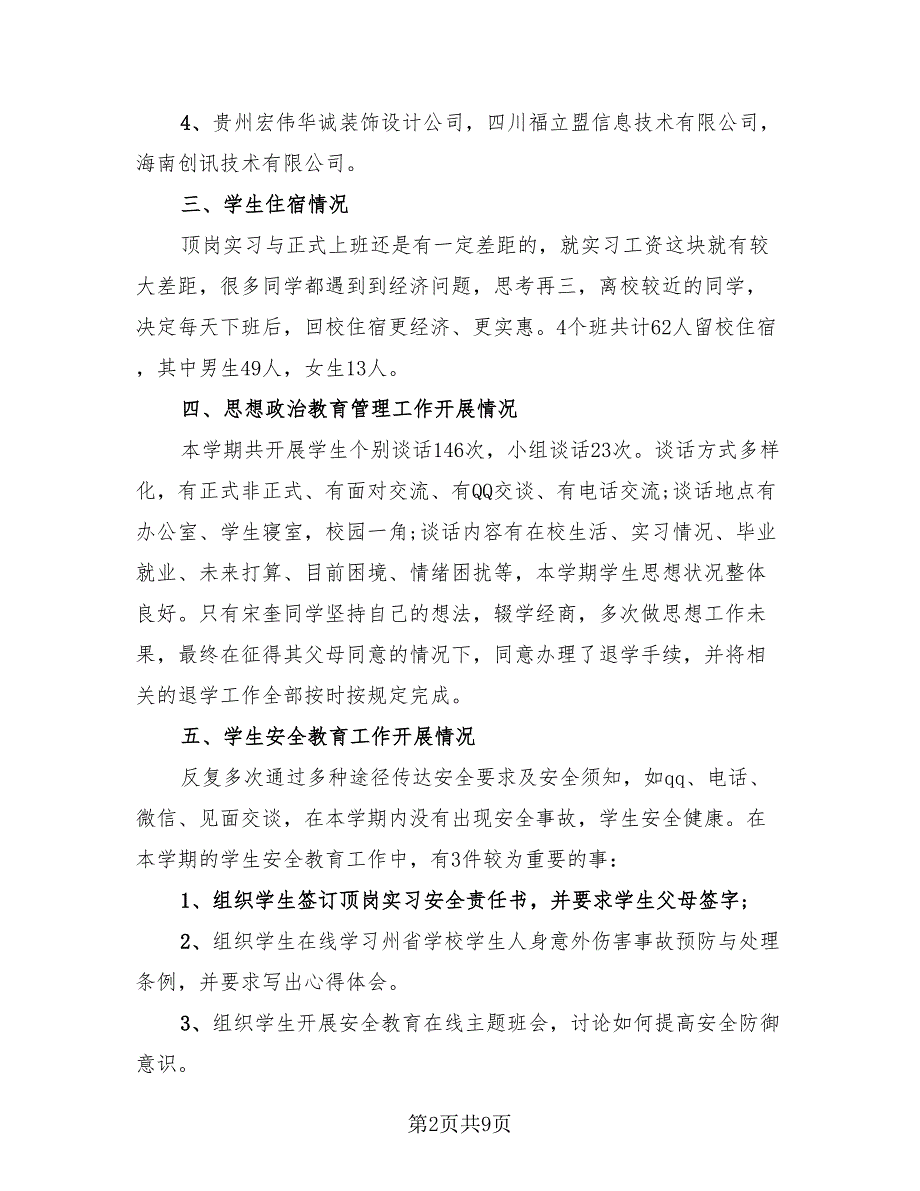 4、贵州宏伟华诚装饰设计公司，四川福立盟信息技术有限公司，
海南创讯技术有限公司。
三、学生住宿情况
顶岗实习与正式上班还是有一定差距的，就实习工资这块就有较
大差距，很多同学都遇到到经济问题，思考再三，离校较近的同学，
决定每天下班后，回校住宿更经济、更实惠。4个班共计62人留校住宿
，其中男生49人，女生13人。
四、思想政治教育管理工作开展情况
本学期共开展学生个别谈话146次，小组谈话23次。谈话方式多样
化，有正式非正式、有面对交流、有QQ交谈、有电话交流;谈话地点有
办公室、学生寝室，校园一角;谈话内容有在校生活、实习情况、毕业
就业、未来打算、目前困境、情绪困扰等，本学期学生思想状况整体
良好。只有宋奎同学坚持自己的想法，辍学经商，多次做思想工作未
果，最终在征得其父母同意的情况下，同意办理了退学手续，并将相
关的退学工作全部按时按规定完成。
五、学生安全教育工作开展情况
反复多次通过多种途径传达安全要求及安全须知，如qq、电话、
微信、见面交谈，在本学期内没有出现安全事故，学生安全健康。在
本学期的学生安全教育工作中，有3件较为重要的事：
1、组织学生签订顶岗实习安全责任书，并要求学生父母签字；
2、组织学生在线学习州省学校学生人身意外伤害事故预防与处理
条例，并要求写出心得体会。
3、组织学生开展安全教育在线主题班会，讨论如何提高安全防御
意识。
第2页共9页